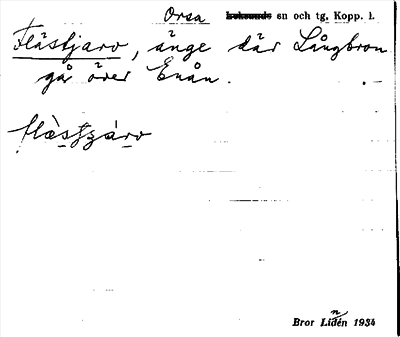 Orsa leksands sn och tg. Kopp. l.
Flästjarv, änge där Långbron
går över Enån.
flæ̀stjä́rv
Bror Lidén 1934